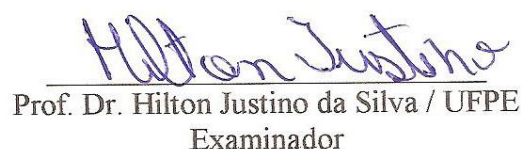 Hilton Justino
Prof. Dr. Hilton Justino da Silva / UFPE
Examinador